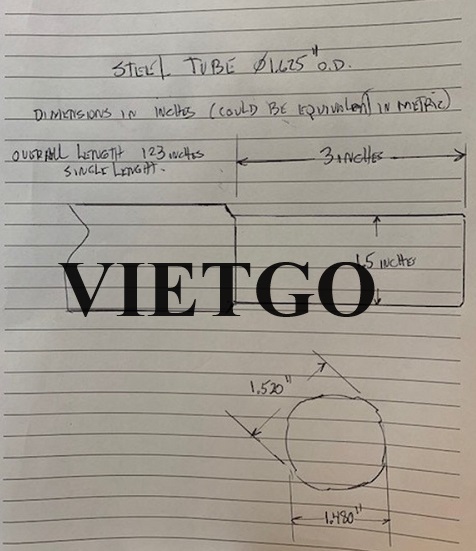 STEEL TUBE Ø1.625" O.D.
DIMENSIONS IN INCHES (COULD BE EQUIVALENT IN METRIC)
OVERALL LENGTH 123 INCHES
SINGLE LENGHT.
3 INCHES
1.5 INCHES
VIETGO
1.520"
1.480"